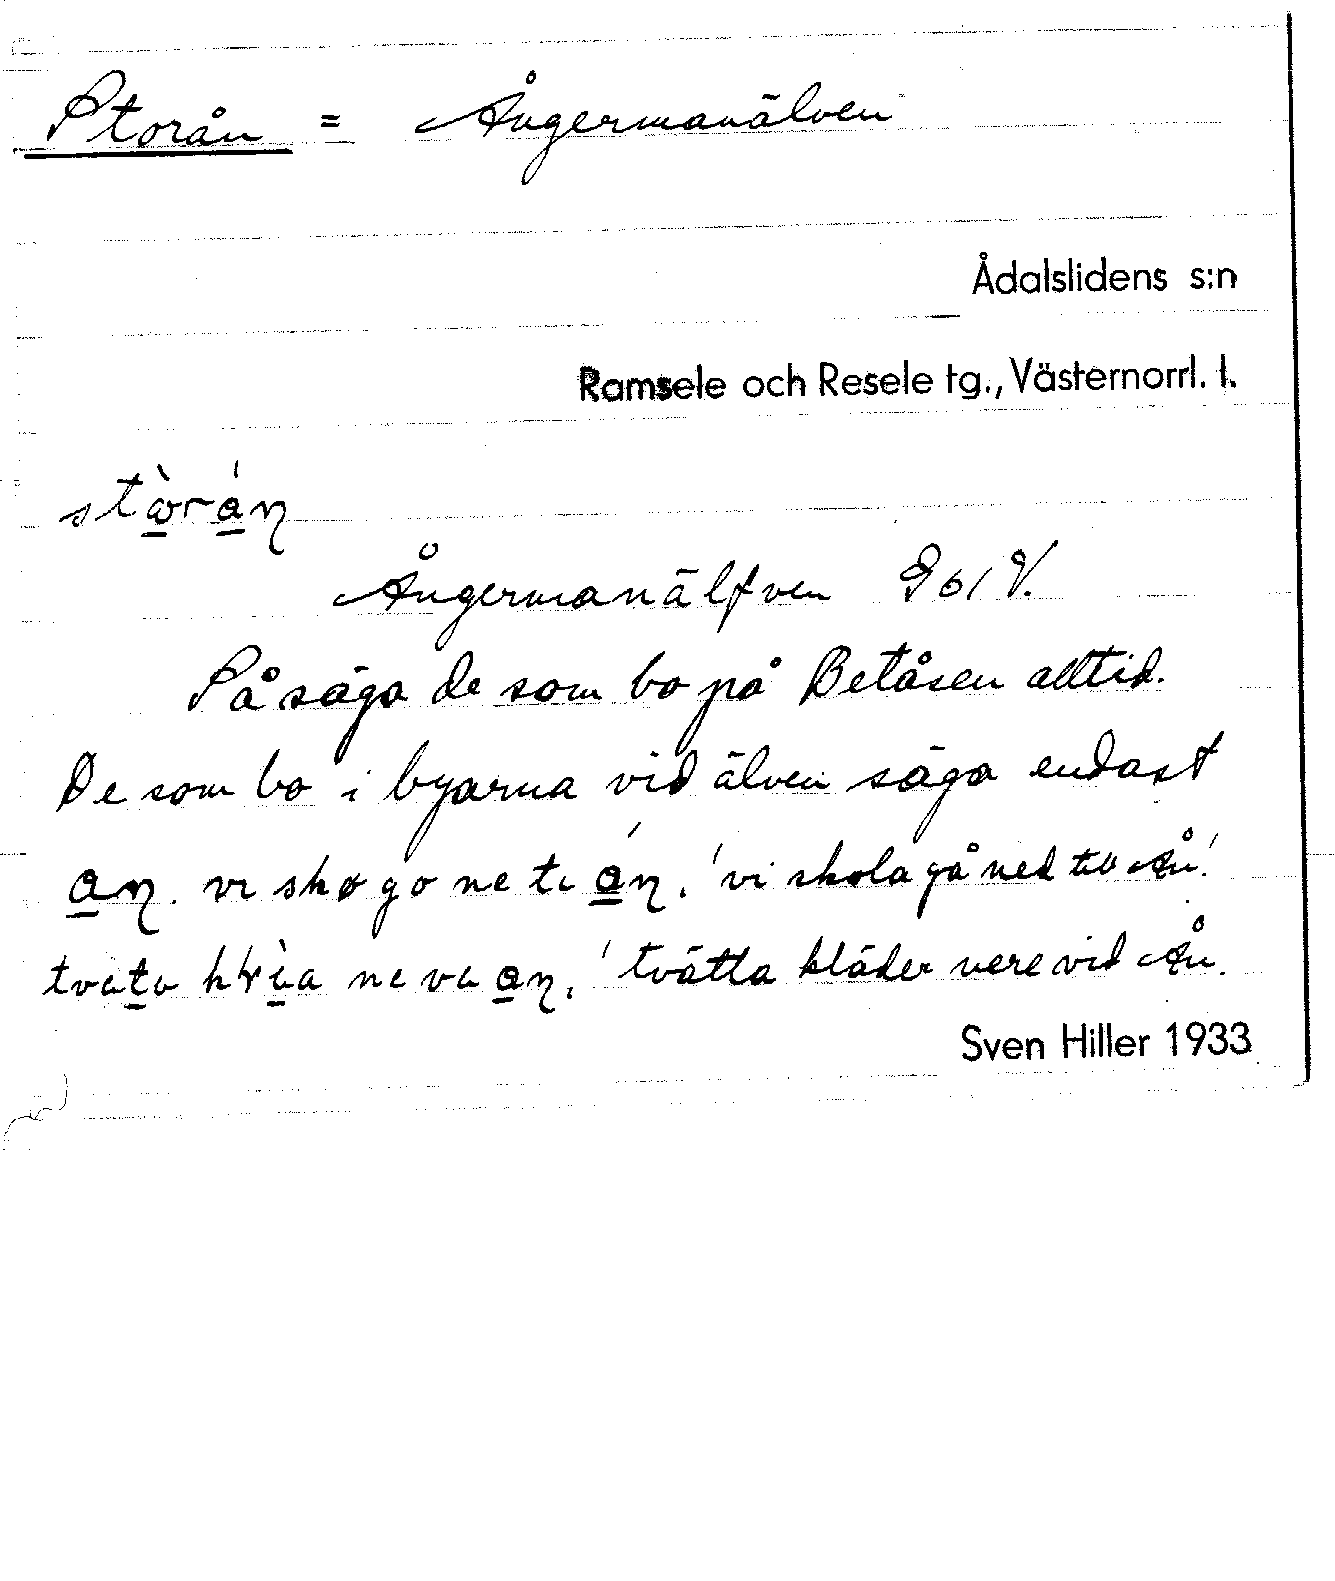 Storån = Ångermanälven
Ådalslidens s:n
Ramsele och Resele tg., Västernorrl. l.
Ångermanälfven
Så säga de som bo på Betåsen alltid.
De som bo i byarna vid älven säga endast
'vi skola gå ned till Ån.'
'tvätta kläder nere vid Ån.
Sven Hiller 1933